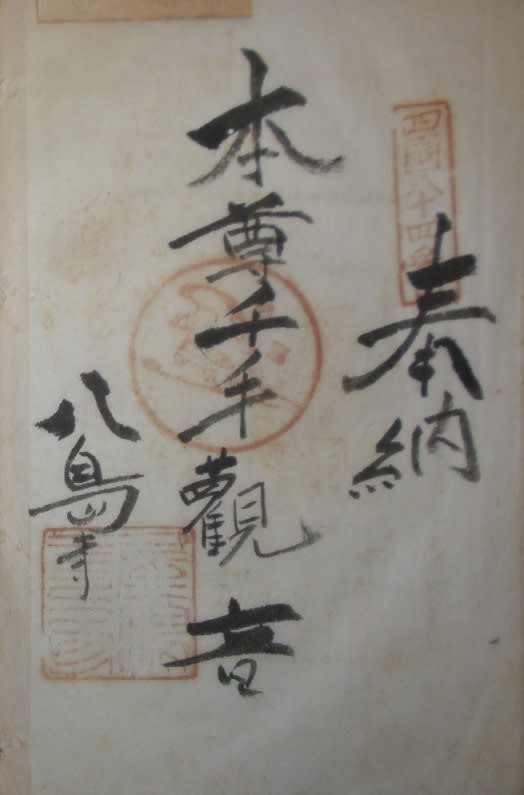 四國八十四番
奉納
本尊千手觀音
八島寺